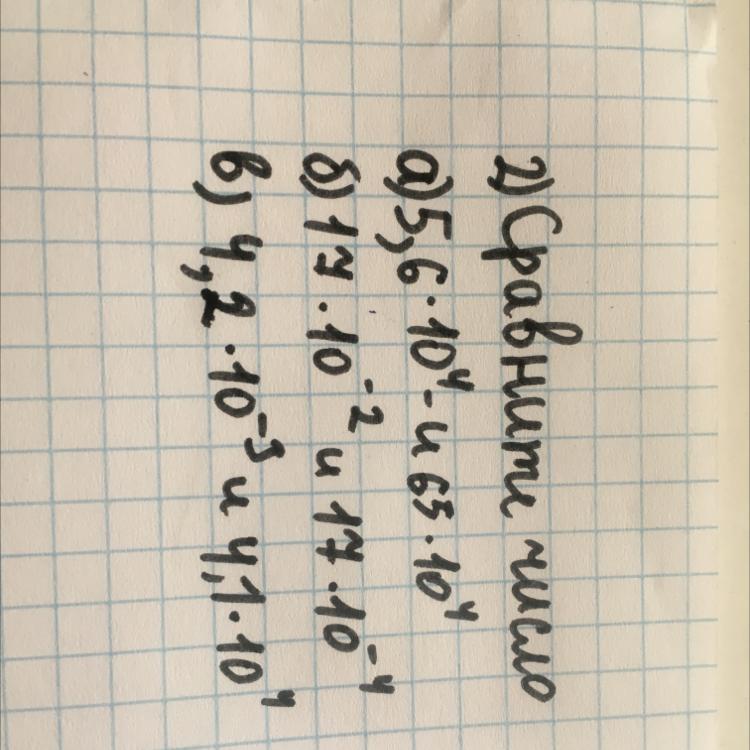 2) Сравните число
а) 5,6 · 10⁴ - и 63 · 10⁴
б) 17 · 10⁻² и 17 · 10⁻⁴
в) 4,2 · 10⁻³ и 4,1 · 10⁴